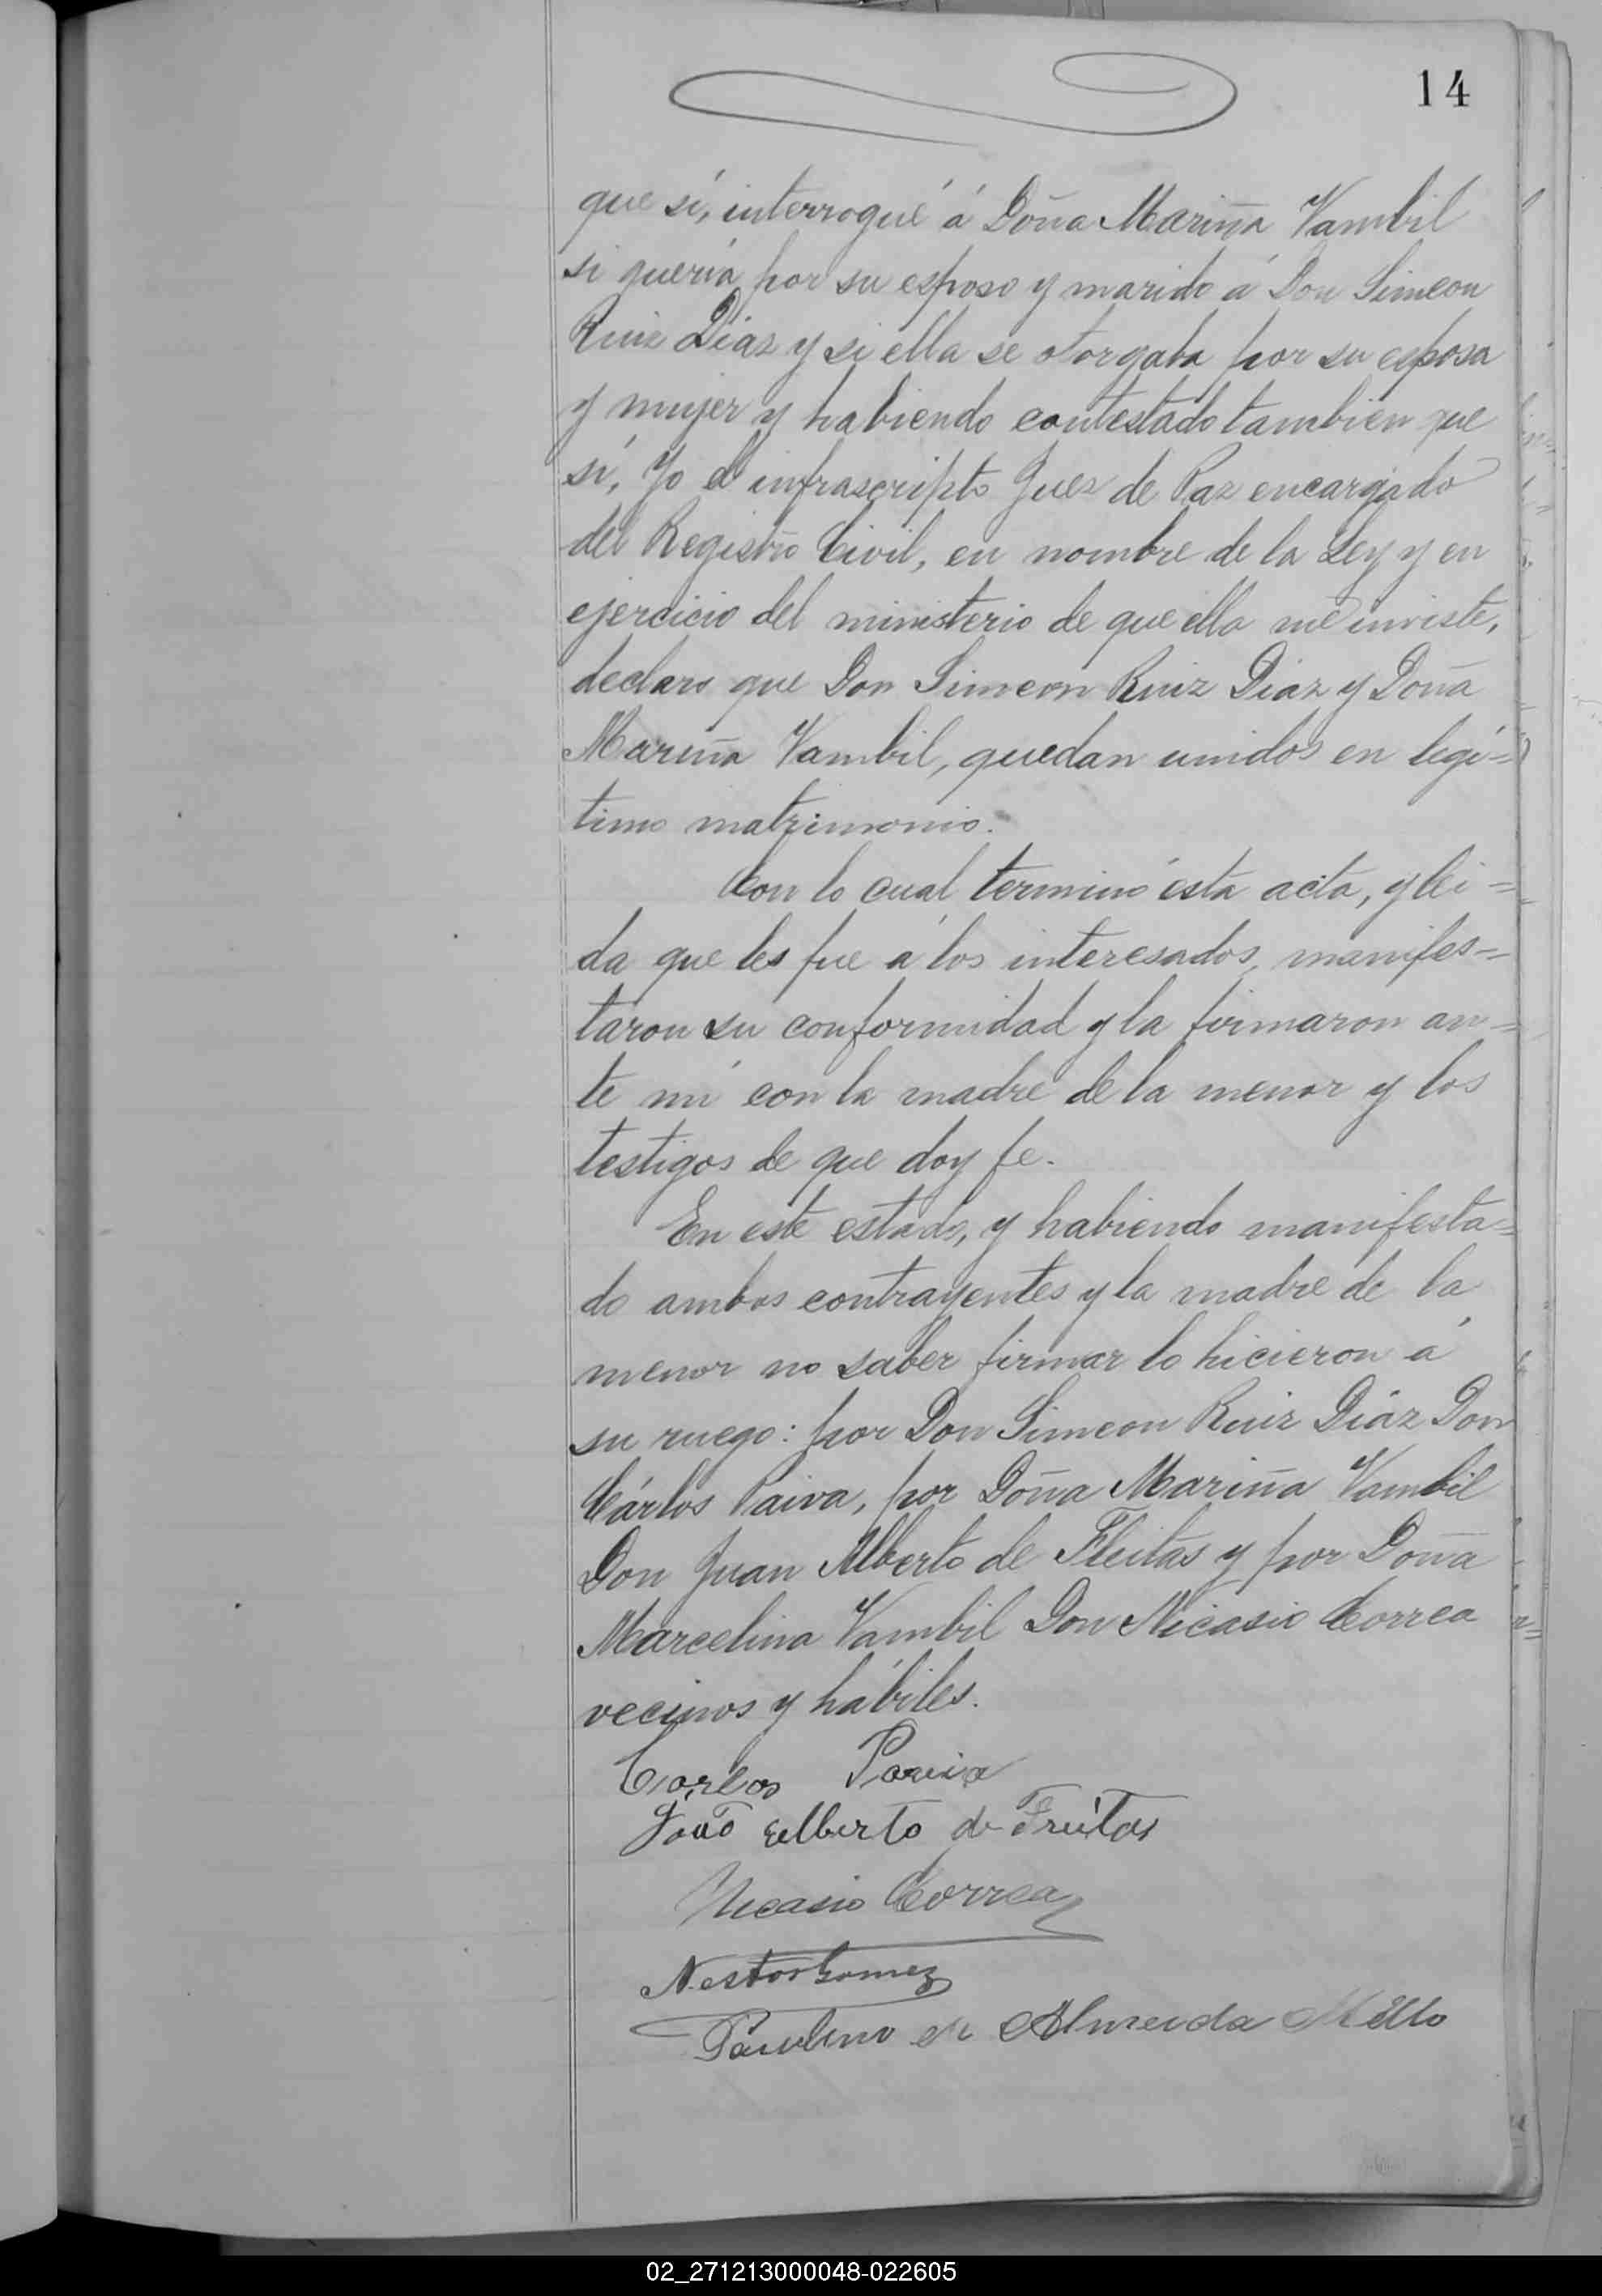 14
que sí, interrogué á Doña Mariña Vambil
si quería por su esposo y marido á Don Simeon
Ruiz Díaz y si ella se otorgaba por su esposa
y mujer y habiendo contestado tambien que
sí, Yo el infrascripto Juez de Paz encargado
del Registro Civil, en nombre de la Ley y en
ejercicio del ministerio de que ella me inviste,
declaro que Don Simeon Ruiz Diaz y Doña
Mariña Vambil, quedan unidos en legí=
timo matrimonio.
Con lo cual terminó ésta acta, y lei=
da que les fue á los interesados, manifes=
taron su conformidad y la firmaron an=
te mí con la madre de la menor y los
testigos de que doy fe.
En este estado, y habiendo manifesta=
do ambos contrayentes y la madre de la
menor no saber firmar lo hicieron á
su ruego: por Don Simeon Ruiz Diáz Don
Cárlos Paiva, por Doña Mariña Vambil
Don Juan Alberto de Fleitas y por Doña
Marcelina Vambil Don Nicasio Correa
vecinos y hábiles.
Carlos
João Alberto de Freitas
Nicasio Correa
Nestor Gomez
Paulino de Almeida Mello
02_271213000048-022605